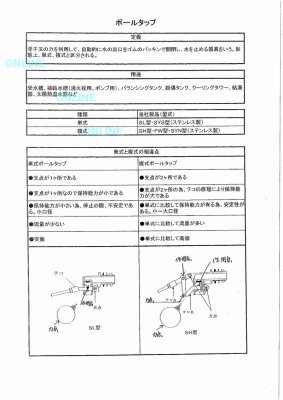 ボールタップ
定義
浮子玉の力を利用して、自動的に水の出口をゴムのパッキンで開閉し、水を止める器具をいう。形
態上、単式、複式と区分される。
用途
受水槽、補給水槽(消火栓用、ポンプ用)、バランシングタンク、膨張タンク、クーリングタワー、給湯
器、太陽熱温水器など
ONLINE
ONLINE
ONLINE
種類 当社製品(型式)
単式 SL型・SYS型(ステンレス製)
複式 SH型・FW型・SYN型(ステンレス製)
単式と複式の相違点
単式ボールタップ 複式ボールタップ
●支点が1ヶ所である ●支点が2ヶ所である
●支点が1ヶ所なので保持能力が小である ●支点が2ヶ所の為、テコの原理により保持能
力が大である
●保持能力が小さい為、停止の際、不安定であ
る。小口径
●単式に比較して保持能力が有る為、安定性が
ある。小~大口径
●流量が少ない ●単式に比較して流量が多い
●安価 ●単式に比較して高価
テコ
支点
力点
SL型
支点
テコ
力点
SH型